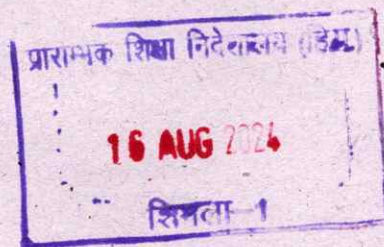 प्रारम्भिक शिक्षा निदेशालय (हि.प्र.)
16 AUG 2024
शिमला-1